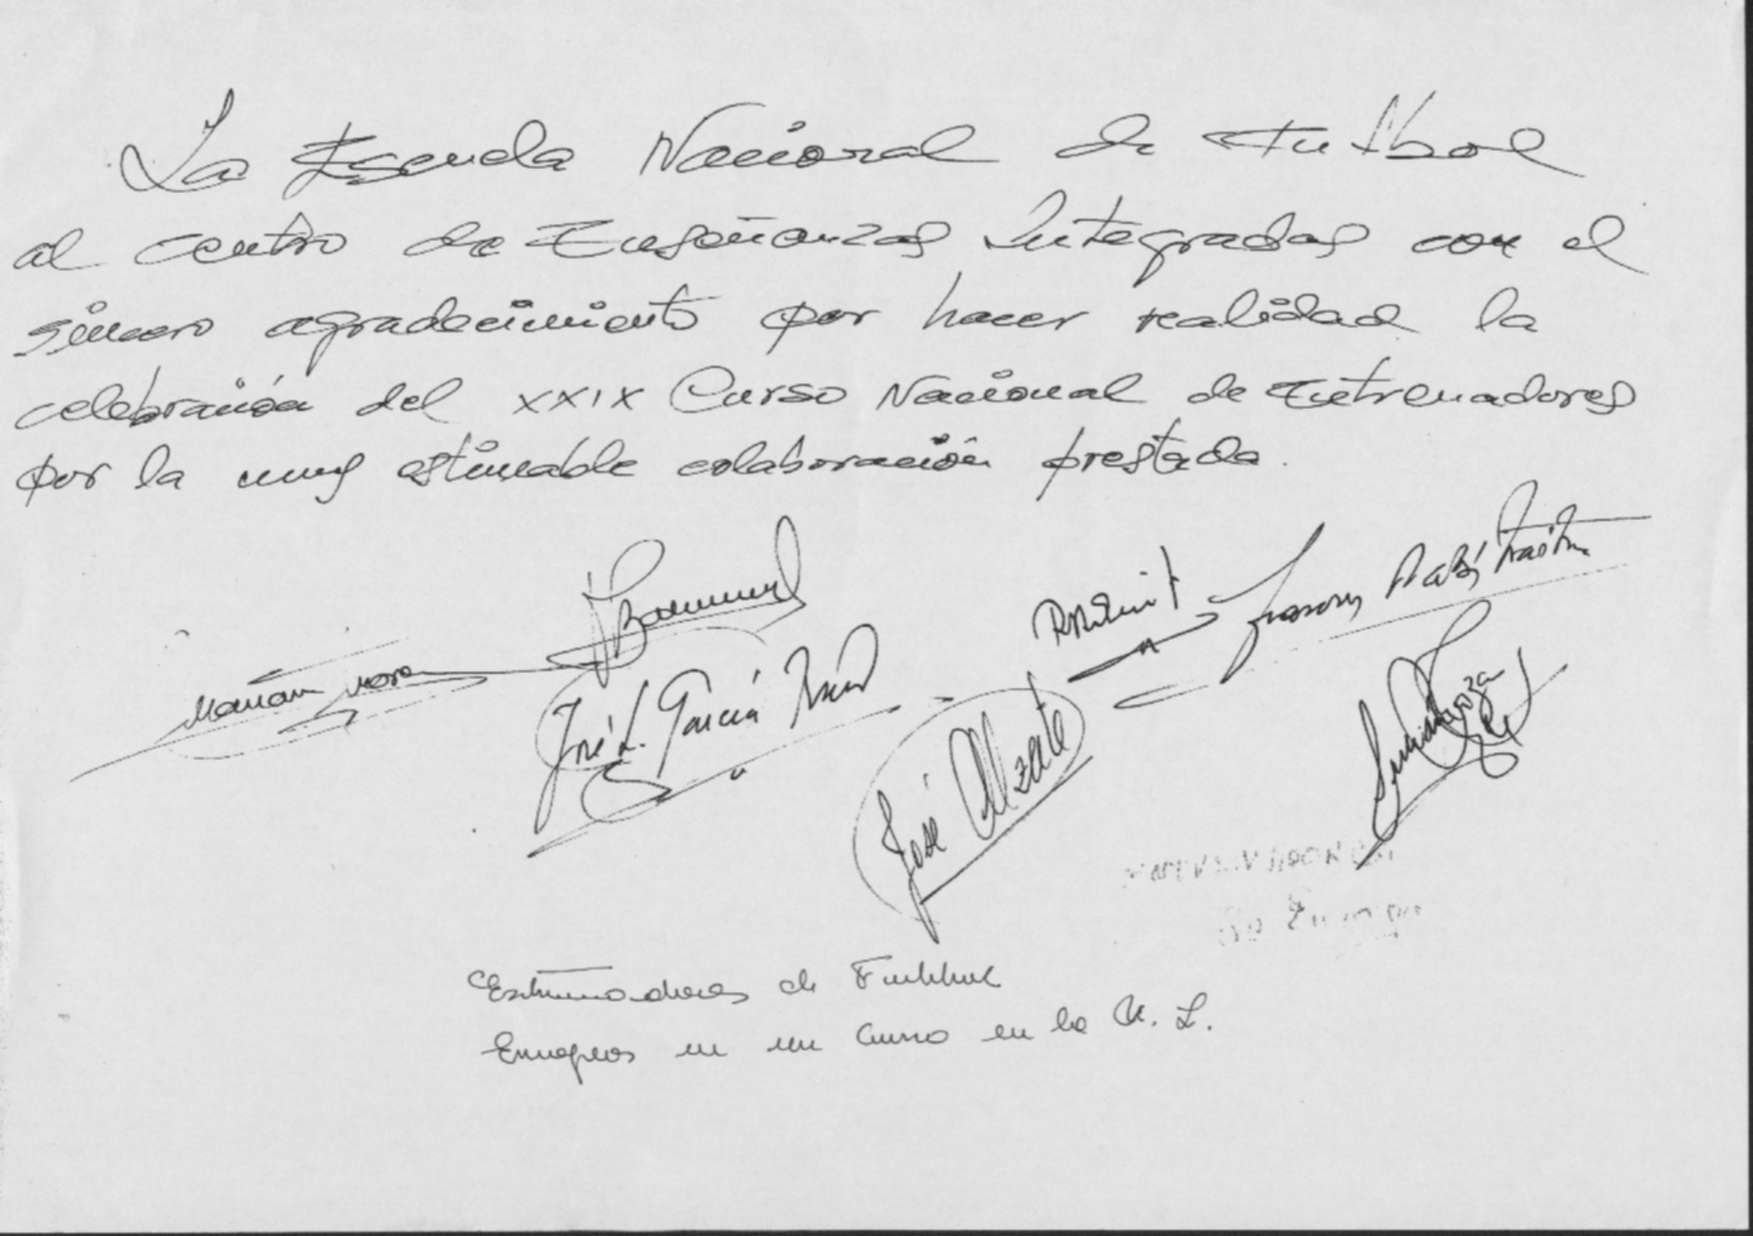 La Escuela Nacional de Futbol
al centro de Enseñanzas Integradas con el
sincero agradecimiento por hacer realidad la
celebración del XXIX Curso Nacional de Entrenadores
por la muy estimable colaboración prestada.
Mariano Moreno
José L. García
José Alzate
Entrenadores de Futbol
Europeos en un Curso en la U. L.